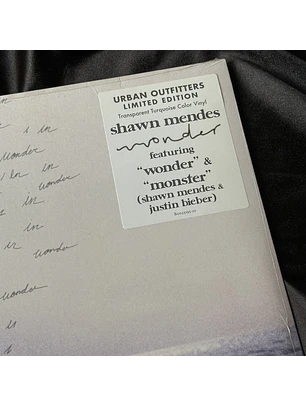 URBAN OUTFITTERS
LIMITED EDITION
Transparent Turquoise Color Vinyl
shawn mendes
wonder
featuring
"wonder" &
"monster"
(shawn mendes &
justin bieber)
in
wonder
in
wonder
in
wonder
wonder